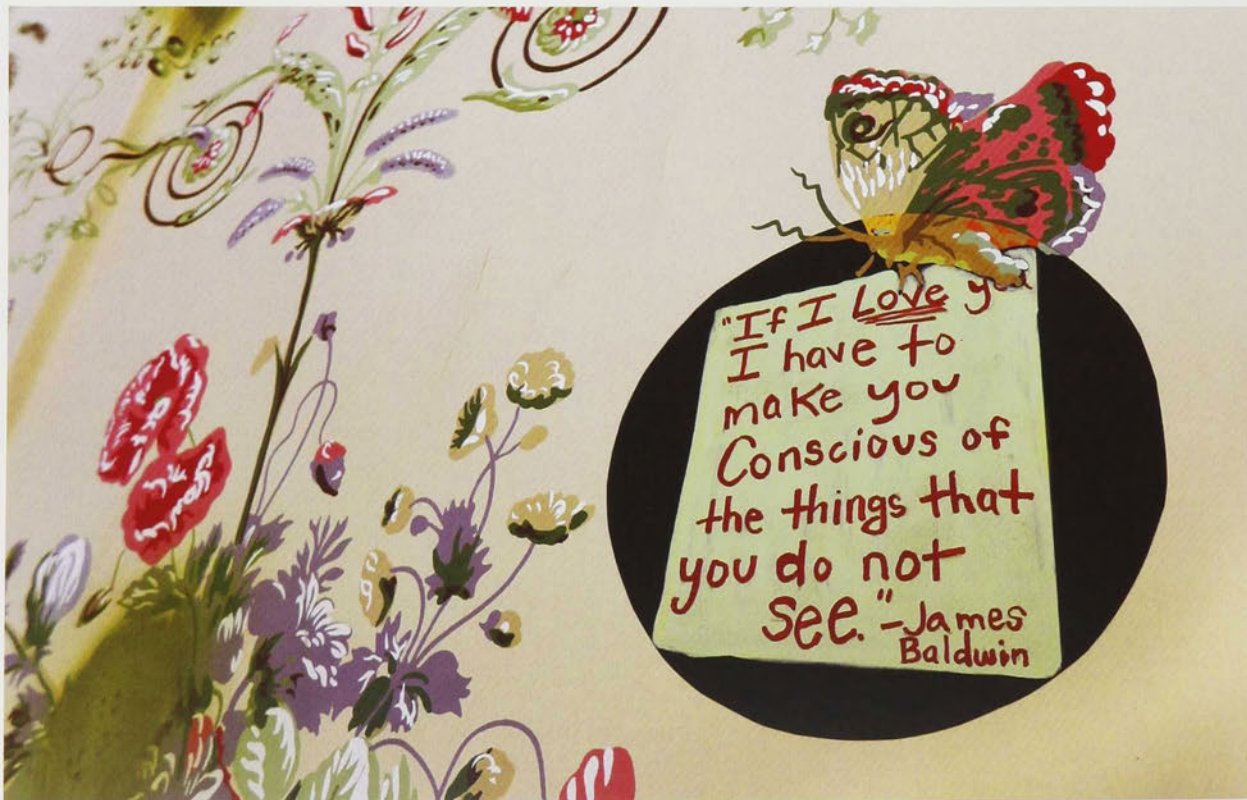 "If I Love you
I have to
make you
Conscious of
the things that
you do not
see."-James
Baldwin